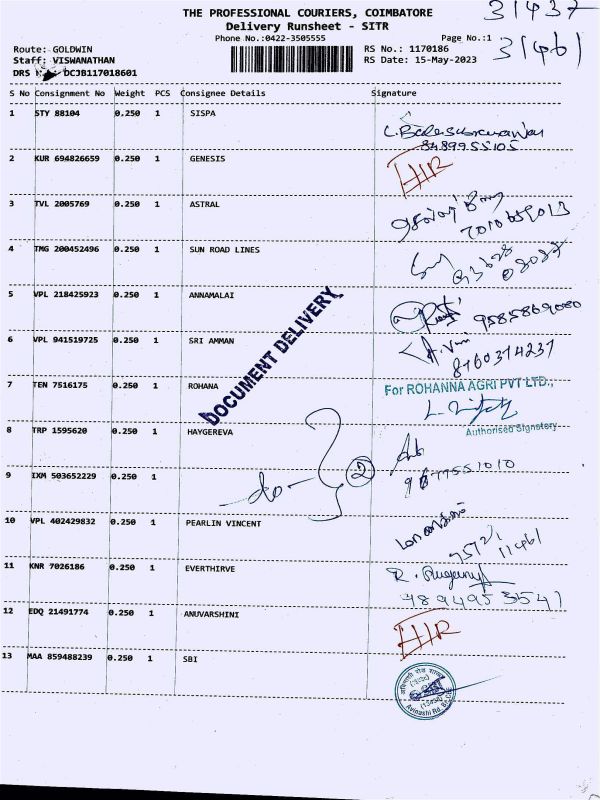 31437
THE PROFESSIONAL COURIERS, COIMBATORE
Delivery Runsheet - SITR
Phone No.:0422-3505555
Page No.:1
31461
Route: GOLDWIN
RS No.: 1170186
Staff: VISWANATHAN
RS Date: 15-May-2023
DRS DCJB117018601
S No Consignment No Weight PCS Consignee Details Signature
1 STY 88104 0.250 1 SISPA
8489955105
2 KUR 694826659 0.250 1 GENESIS
H/R
3 TVL 2005769 0.250 1 ASTRAL
4 TMG 200452496 0.250 1 SUN ROAD LINES
5 VPL 218425923 0.250 1 ANNAMALAI
9585869080
6 VPL 941519725 0.250 1 SRI AMMAN
8760374237
DOCUMENT DELIVERY
7 TEN 7516175 0.250 1 ROHANA
For ROHANNA AGRI PVT LTD.,
Authorised Signatory
8 TRP 1595620 0.250 1 HAYGEREVA
2
9 IXM 503652229 0.250 1 -do-
10 VPL 402429832 0.250 1 PEARLIN VINCENT
11 KNR 7026186 0.250 1 EVERTHIRVE
9894953541
12 EDQ 21491774 0.250 1 ANUVARSHINI
H/R
13 MAA 859488239 0.250 1 SBI